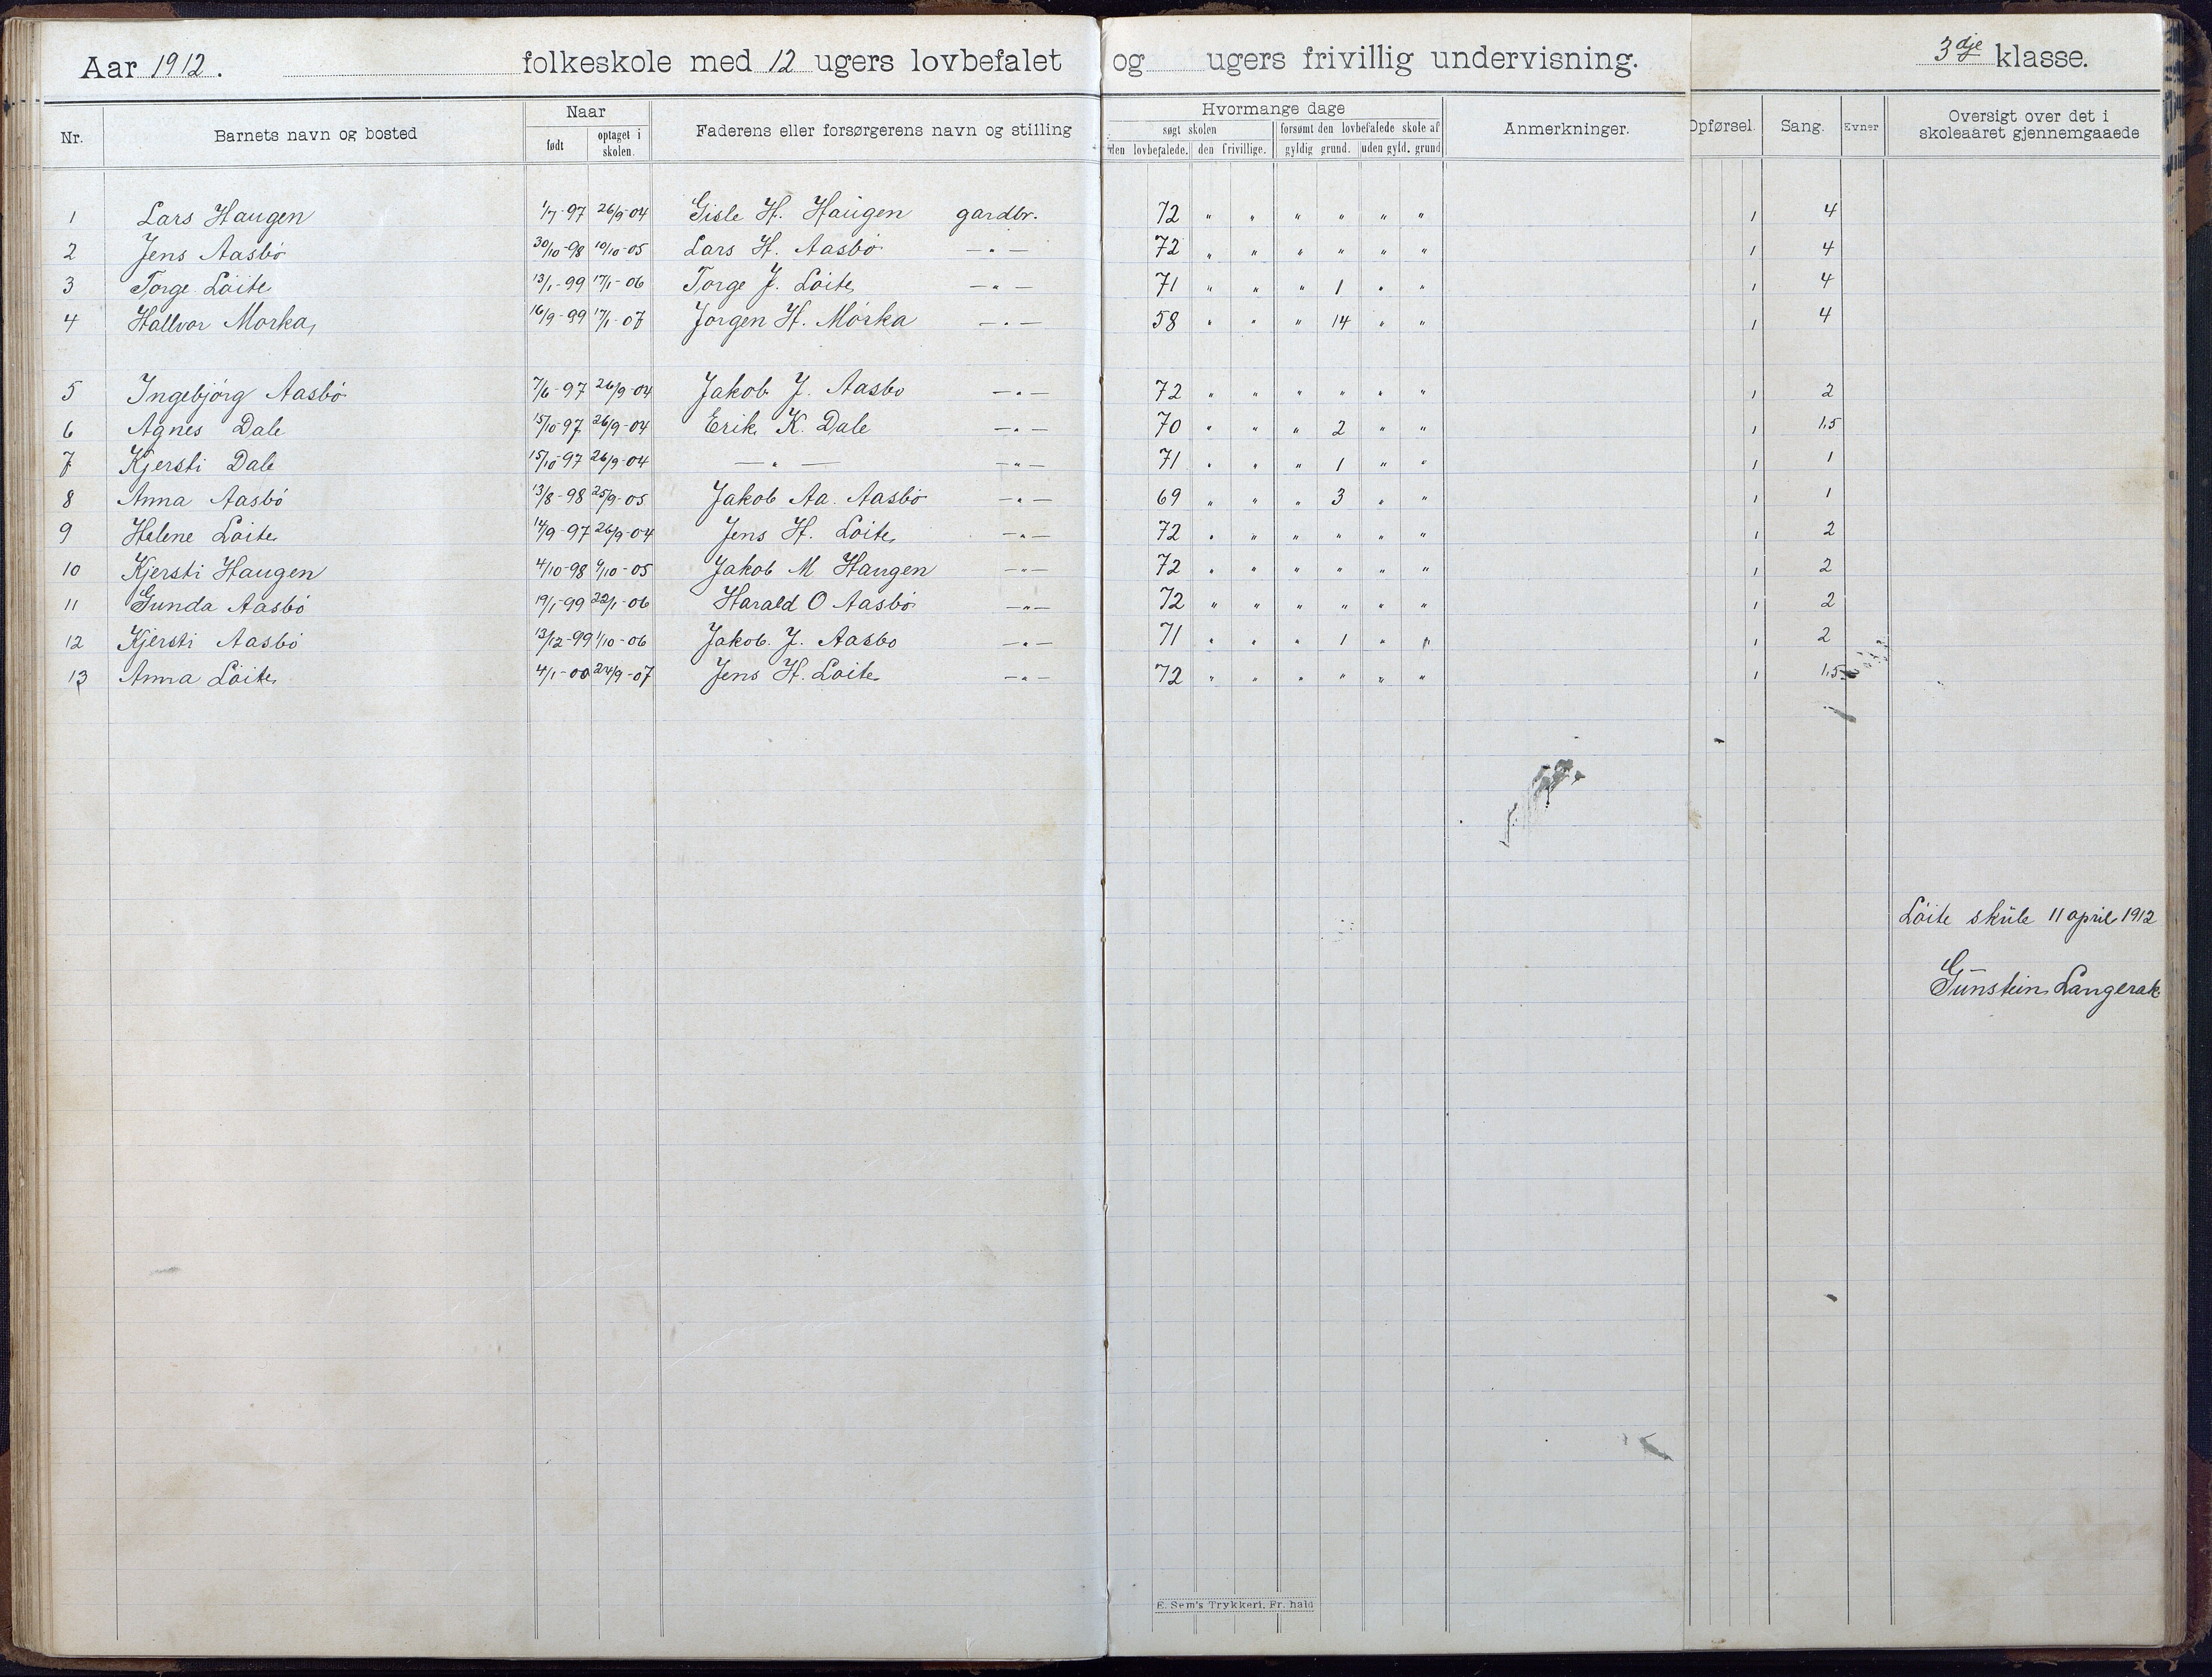 Aar 1912. folkeskole med 12 ugers lovbefalet og ugers frivillig undervisning. 3dje klasse.
Nr. Barnets navn og bosted Naar født optaget i skolen. Faderens eller forsørgerens navn og stilling Hvormange dage søgt skolen den lovbefalede. den frivillige. forsømt den lovbefalede skole af gyldig grund. uden gyld. grund Anmerkninger. Opførsel. Sang. Evner Oversigt over det i skoleaaret gjennemgaaede
1 Lars Haugen 1/7-97 26/9-04 Gisle H. Haugen gardbr. 72 " " " " " " 1 4
2 Jens Aasbö 30/10-98 10/10-05 Lars H. Aasbö —"— 72 " " " " " " 1 4
3 Torge Löite 13/1-99 17/1-06 Torge J. Löite —"— 71 " " " 1 " " 1 4
4 Hallvor Morka 16/9-99 17/1-07 Jörgen H. Mörka —"— 58 " " " 14 " " 1 4
5 Ingebjörg Aasbö 7/6-97 26/9-04 Jakob J. Aasbo —"— 72 " " " " " " 1 2
6 Agnes Dale 15/10-97 26/9-04 Erik K. Dale —"— 70 " " " 2 " " 1 1,5
7 Kjersti Dale 15/10-97 26/9-04 —"— —"— 71 " " " 1 " " 1 1
8 Anna Aasbö 13/8-98 25/9-05 Jakob Aa. Aasbö —"— 69 " " " 3 " " 1 1
9 Helene Löite 14/9-97 26/9-04 Jens H. Löite —"— 72 " " " " " " 1 2
10 Kjersti Haugen 4/10-98 9/10-05 Jakob M Haugen —"— 72 " " " " " " 1 2
11 Gunda Aasbö 19/1-99 22/1-06 Harald O Aasbö —"— 72 " " " " " " 1 2
12 Kjersti Aasbö 13/12-99 1/10-06 Jakob J. Aasbo —"— 71 " " " 1 " " 1 2
13 Anna Löite 4/1-00 24/9-07 Jens H. Loite —"— 72 " " " " " " 1 1,5
Löite skule 11 april 1912
Gunstein Langerak
E. Sem's Trykkeri, Fr. hald